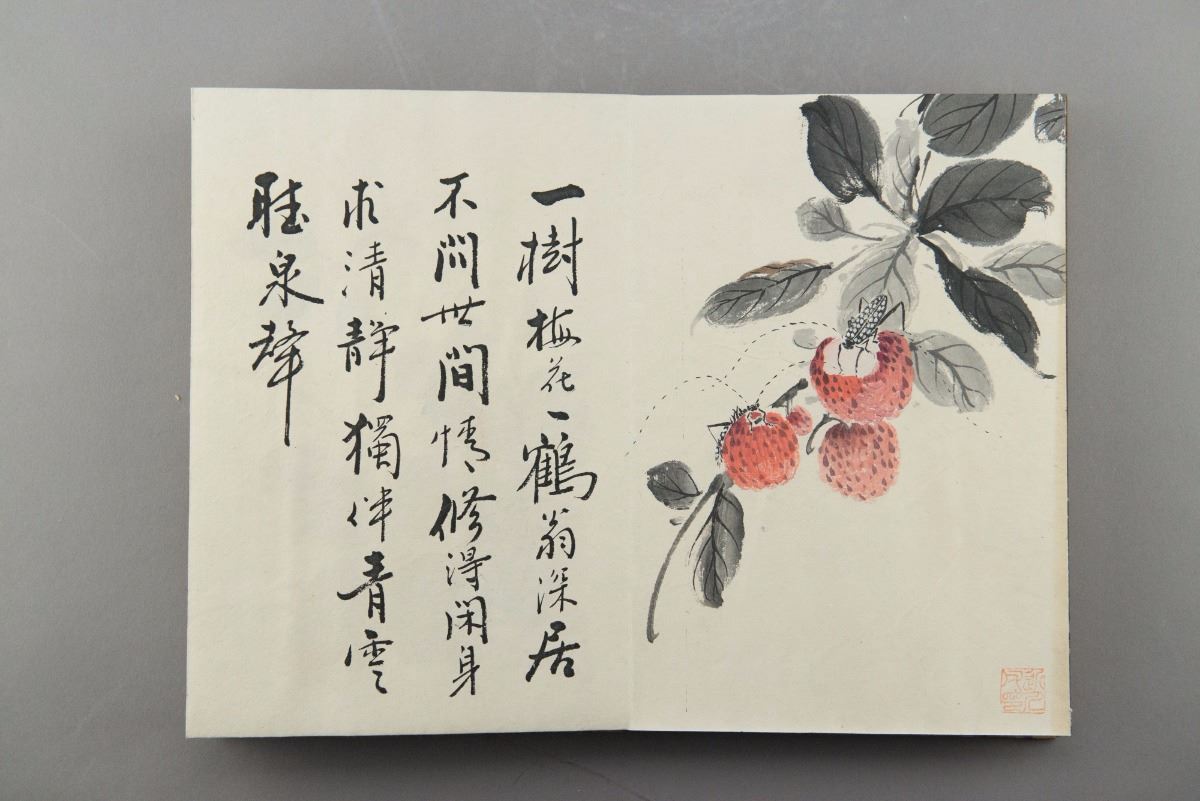 一樹梅花一鶴翁深居
不問世間情修得閑身
求清静獨伴青雲
聴泉聲